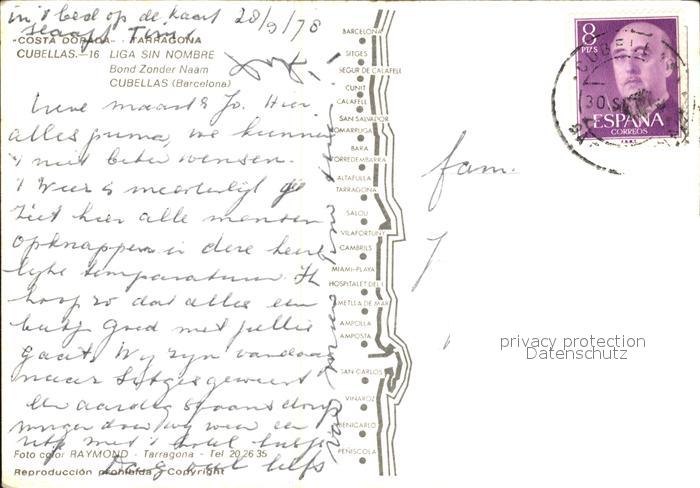 in 't bed op de kaart 28/9/78
slaapt Tim
-COSTA DORADA- TARRAGONA
CUBELLAS.—16 LIGA SIN NOMBRE
Bond Zonder Naam
CUBELLAS (Barcelona)
Lieve maart & Jo. Hier
alles prima, we kunnen
't niet beter wensen.
't Weer is meesterlijk je
ziet hier alle mensen
opknappen in deze heer
lijke temperatuur. Ik
hoop zo dat alles een
beetje goed met jullie
gaat. Wij zijn vandaag
naar Sitges geweest
Een aardig spaans dorp
morgen doen wij weer een
ritje met 't hotel busje
Foto color RAYMOND - Tarragona - Tel. 20 26 35
Dag veel liefs
Reproducción prohibida - Copyright
BARCELONA
SITGES
SEGUR DE CALAFELL
CUNIT
CALAFELL
SAN SALVADOR
COMARRUGA
BARA
TORREDEMBARRA
ALTAFULLA
TARRAGONA
SALOU
VILAFORTUNY
CAMBRILS
MIAMI-PLAYA
HOSPITALET DEL I.
AMETLLA DE MAR
AMPOLLA
AMPOSTA
SAN CARLOS
VINAROZ
BENICARLO
PEÑISCOLA
fam.
J
8
PTS
ESPAÑA
CORREOS
CUBELLAS
30 SE
privacy protection
Datenschutz